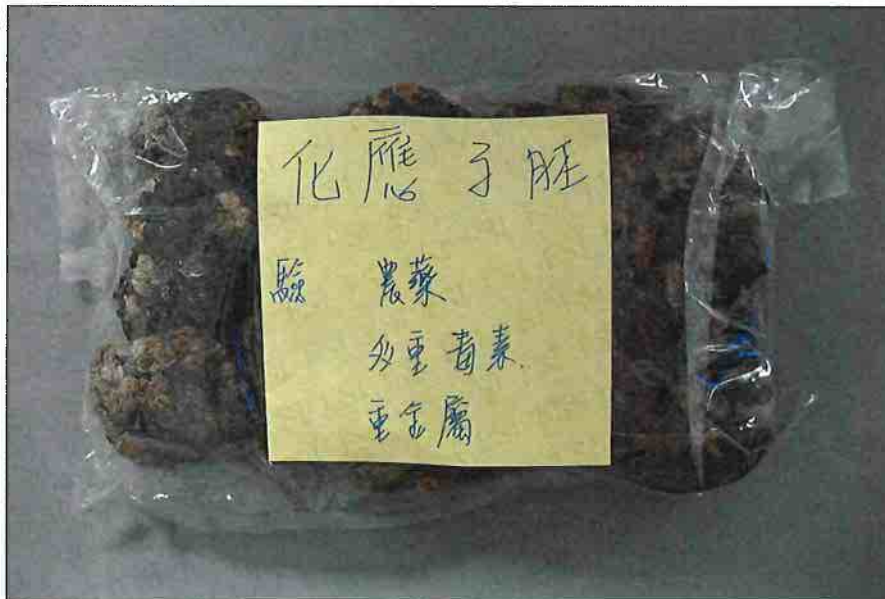 化應子胚
驗 農藥
多重毒素
重金屬